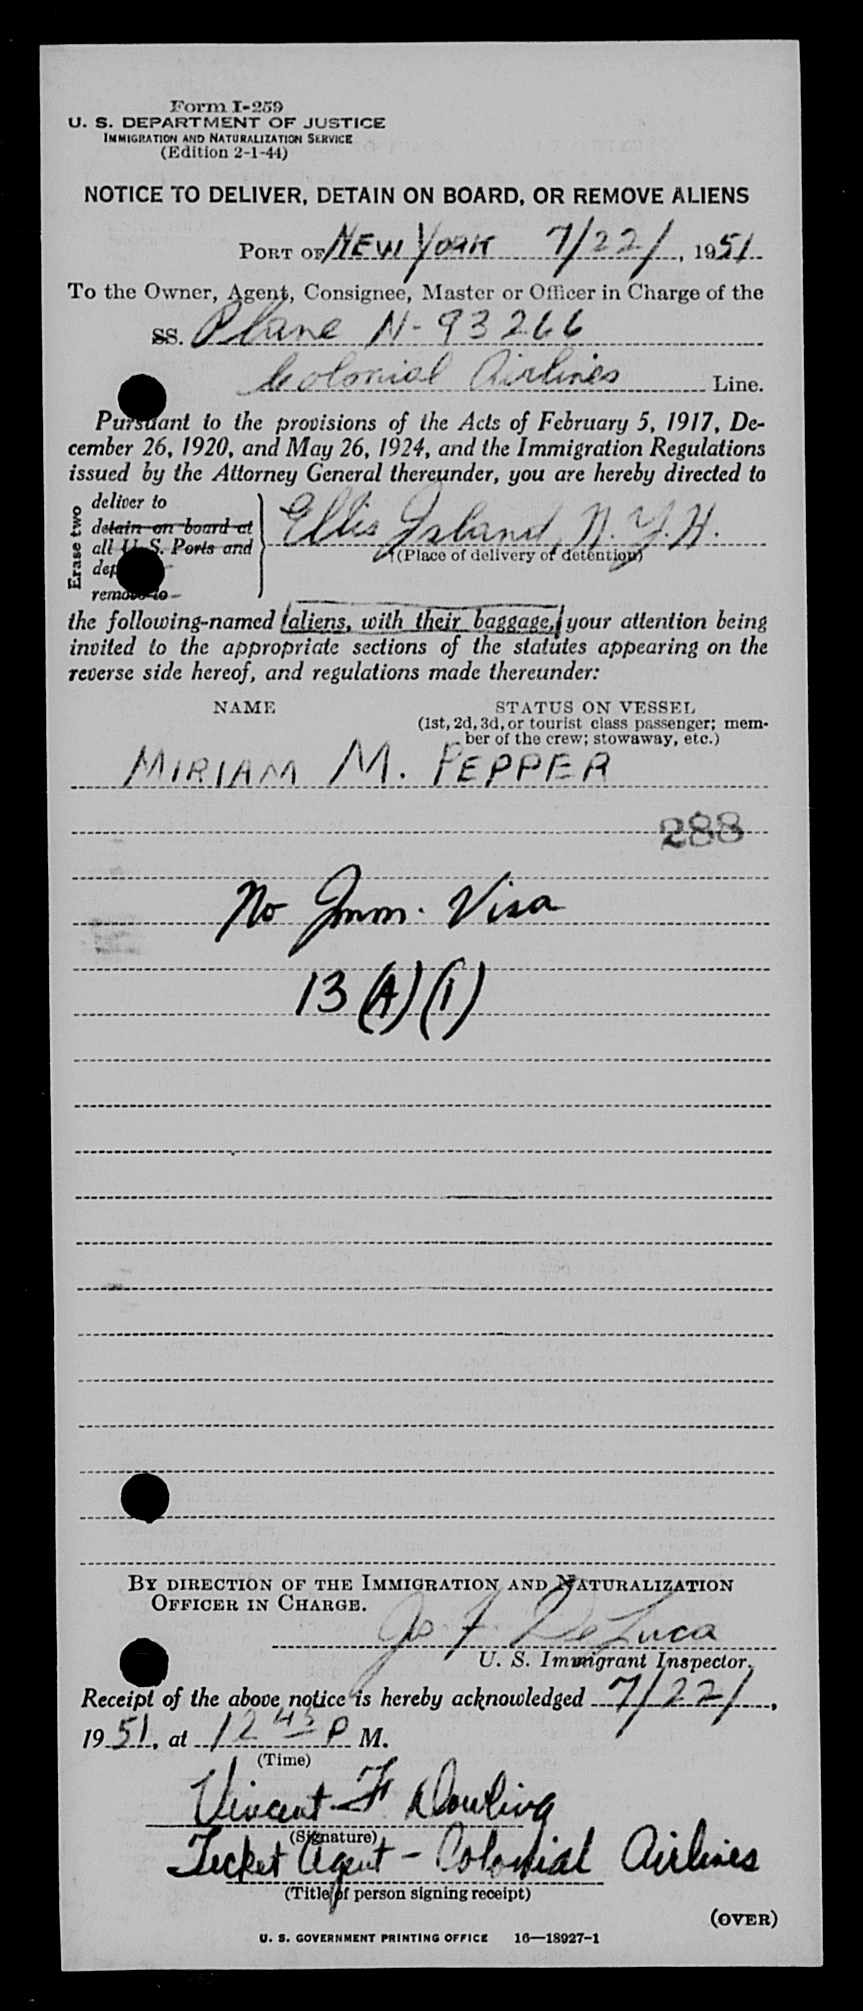 Form I-259
U. S. DEPARTMENT OF JUSTICE
IMMIGRATION AND NATURALIZATION SERVICE
(Edition 2-1-44)
NOTICE TO DELIVER, DETAIN ON BOARD, OR REMOVE ALIENS
PORT OF NEW YORK 7/22/, 1951
To the Owner, Agent, Consignee, Master or Officer in Charge of the
SS. Plane N-93266
Colonial Airlines Line.
Pursuant to the provisions of the Acts of February 5, 1917, De-
cember 26, 1920, and May 26, 1924, and the Immigration Regulations
issued by the Attorney General thereunder, you are hereby directed to
Erase two
deliver to
detain on board at
all U. S. Ports and
remove to
Ellis Island, N.Y.H.
(Place of delivery of detention)
the following-named aliens, with their baggage, your attention being
invited to the appropriate sections of the statutes appearing on the
reverse side hereof, and regulations made thereunder:
NAME STATUS ON VESSEL
(1st, 2d, 3d, or tourist class passenger; mem-
ber of the crew; stowaway, etc.)
MIRIAM M. PEPPER
288
No Imm. Visa
13 (A) (1)
BY DIRECTION OF THE IMMIGRATION AND NATURALIZATION
OFFICER IN CHARGE.
Jos. F. DeLuca
U. S. Immigrant Inspector.
Receipt of the above notice is hereby acknowledged 7/22/,
1951, at 12 45 P M.
(Time)
Vincent F Dowling
(Signature)
Ticket Agent - Colonial Airlines
(Title of person signing receipt)
(OVER)
U. S. GOVERNMENT PRINTING OFFICE 16—18927-1